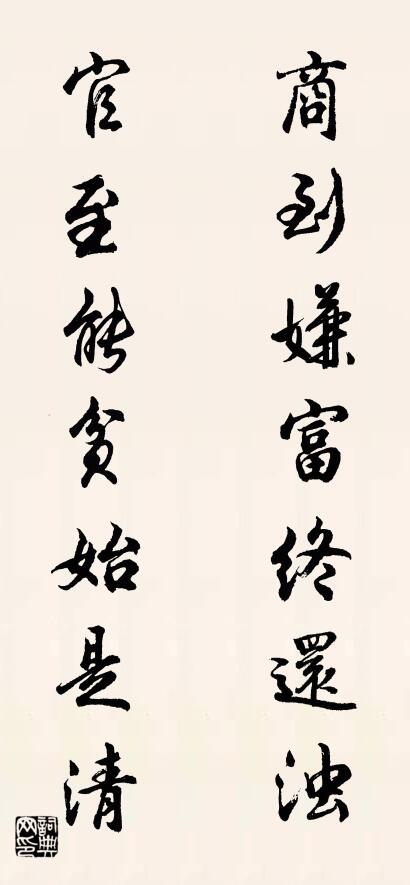 商到嫌富终還浊
官至能貧始是清
詞典网印